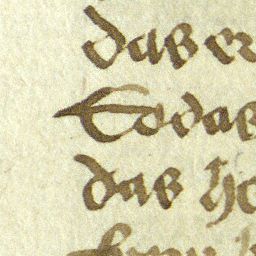 das er
So das
das h